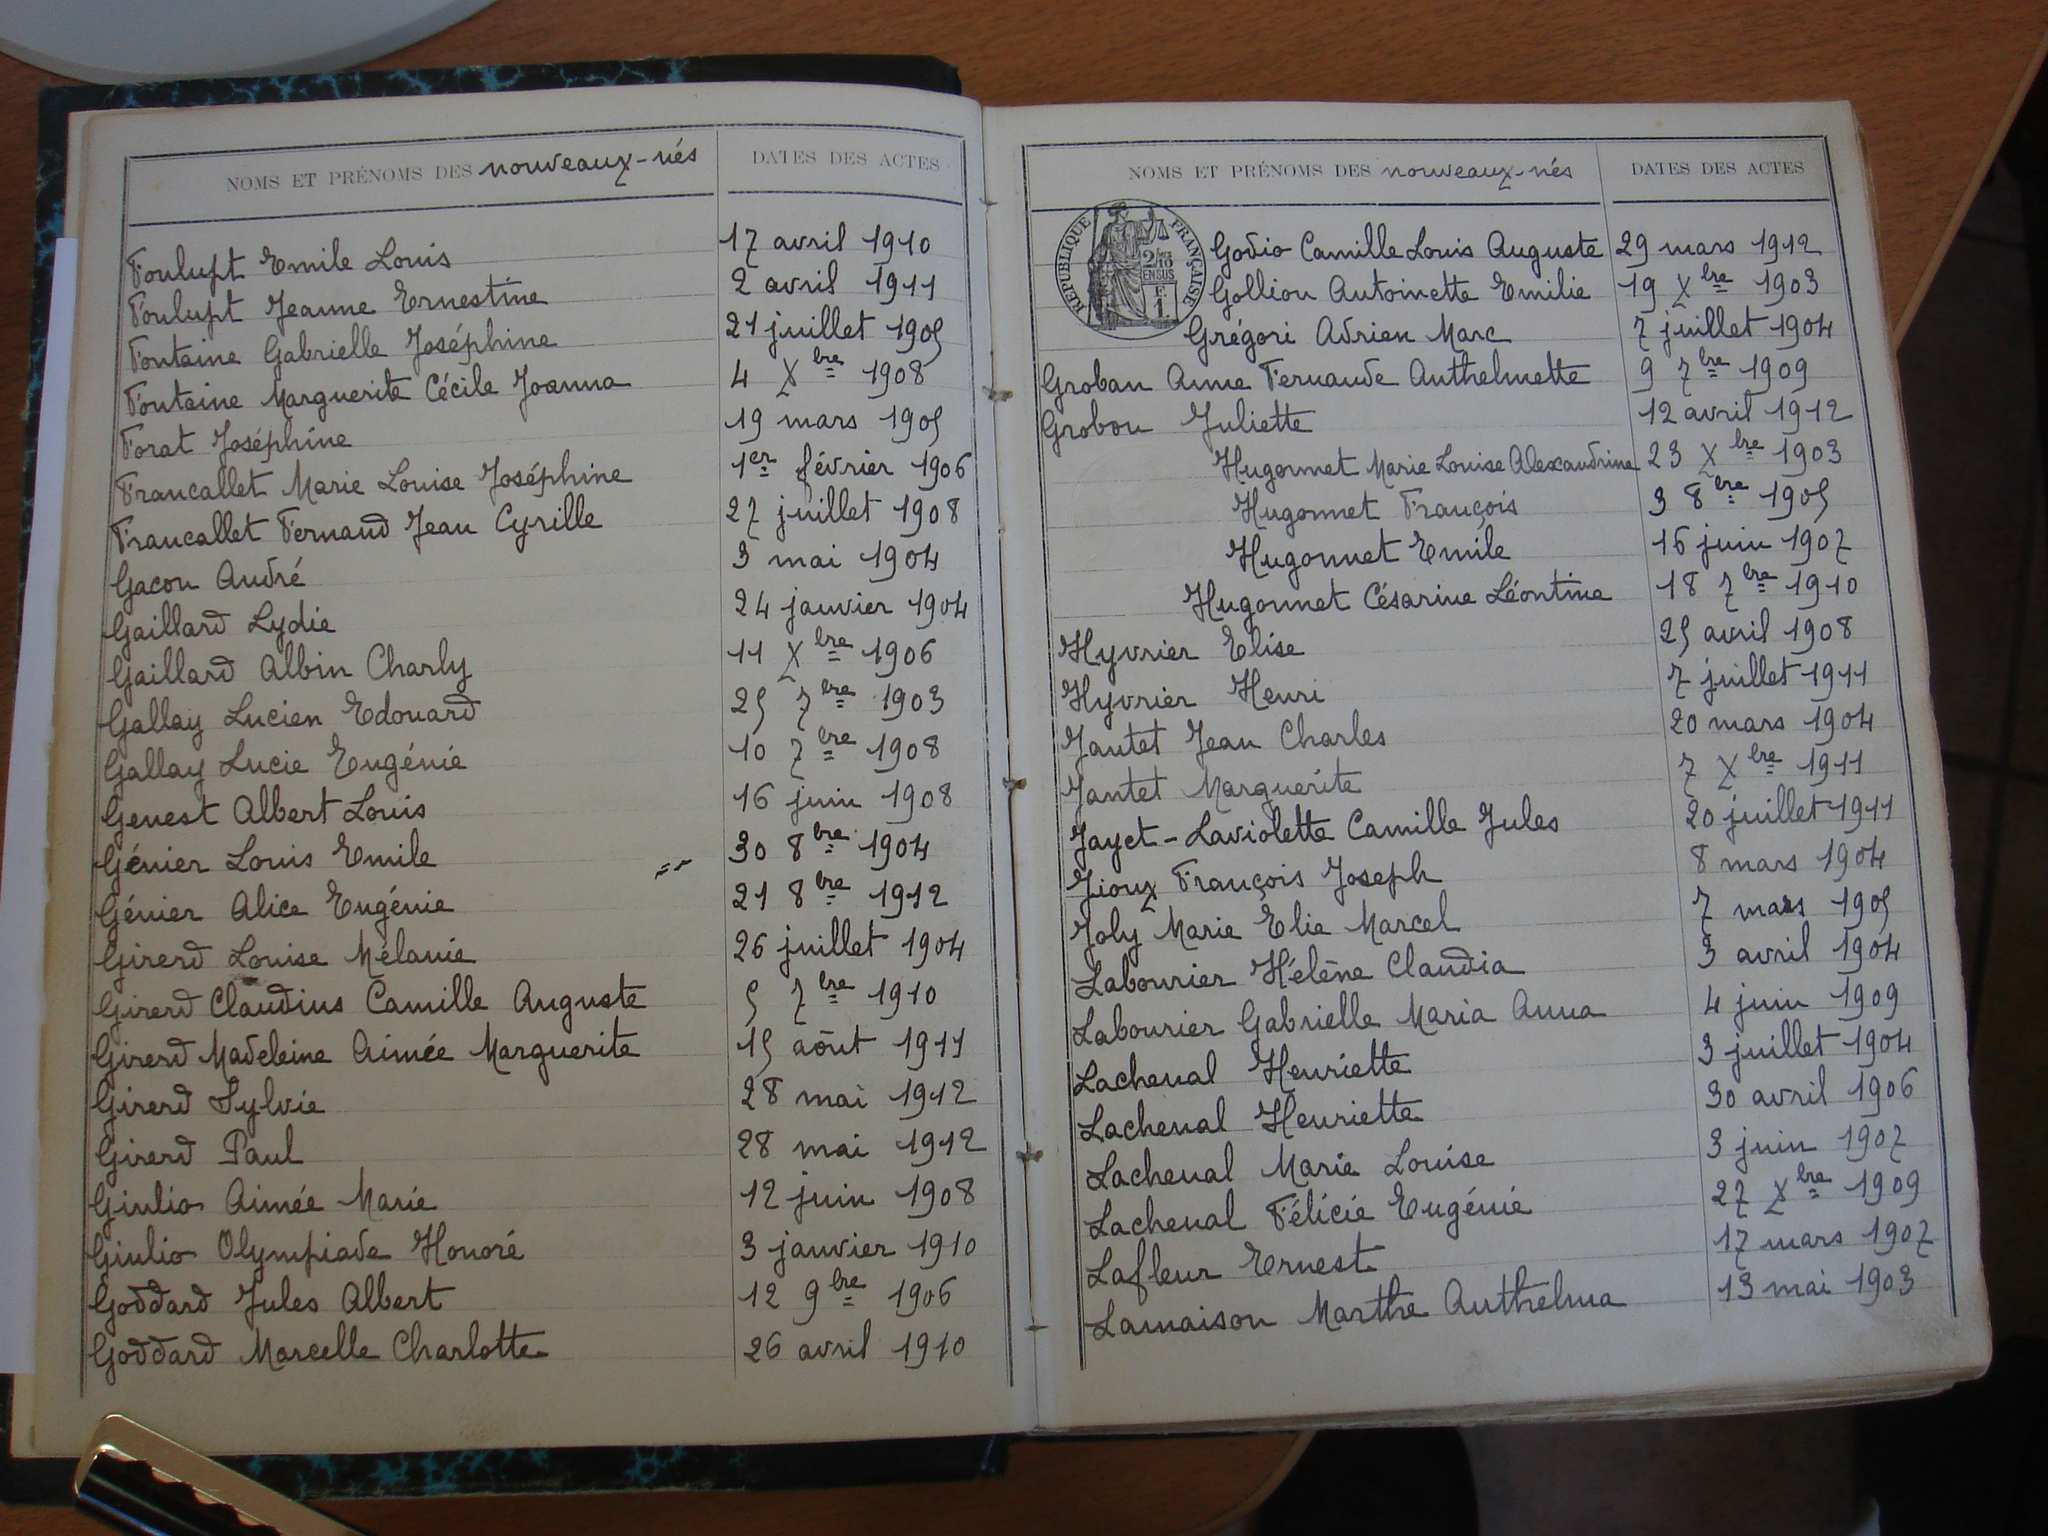 NOMS ET PRÉNOMS DES nouveaux-nés DATES DES ACTES
Foulupt Emile Louis 17 avril 1910
Foulupt Jeanne Ernestine 2 avril 1911
Fontaine Gabrielle Joséphine 21 juillet 1905
Fontaine Marguerite Cécile Joanna 4 Xbre 1908
Forat Joséphine 19 mars 1905
Francallet Marie Louise Joséphine 1er février 1906
Francallet Fernand Jean Cyrille 27 juillet 1908
Gacon André 3 mai 1904
Gaillard Lydie 24 janvier 1904
Gaillard Albin Charly 11 Xbre 1906
Gallay Lucien Edouard 25 7bre 1903
Gallay Lucie Eugénie 10 7bre 1908
Genest Albert Louis 16 juin 1908
Génier Louis Emile 30 8bre 1904
Génier Alice Eugénie 21 8bre 1912
Girerd Louise Mélanie 26 juillet 1904
Girerd Claudius Camille Auguste 5 7bre 1910
Girerd Madeleine Aimée Marguerite 15 août 1911
Girerd Sylvie 28 mai 1912
Girerd Paul 28 mai 1912
Giulio Aimée Marie 12 juin 1908
Giulio Olympiade Honoré 3 janvier 1910
Goddard Jules Albert 12 9bre 1906
Goddard Marcelle Charlotte 26 avril 1910
NOMS ET PRÉNOMS DES nouveaux-nés DATES DES ACTES
RÉPUBLIQUE FRANÇAISE
2/10
EN SUS
1
Godio Camille Louis Auguste 29 mars 1912
Gollion Antoinette Emilie 19 Xbre 1903
Grégori Adrien Marc 7 juillet 1904
Groban Anne Fernande Anthelmette 9 7bre 1909
Grobon Juliette 12 avril 1912
Hugonnet Marie Louise Alexandrine 23 Xbre 1903
Hugonnet François 3 8bre 1905
Hugonnet Emile 16 juin 1907
Hugonnet Césarine Léontine 18 7bre 1910
Hyvrier Elise 25 avril 1908
Hyvrier Henri 7 juillet 1911
Jantet Jean Charles 20 mars 1904
Jantet Marguerite 7 Xbre 1911
Jayet-Laviolette Camille Jules 20 juillet 1911
Jioux François Joseph 8 mars 1904
Joly Marie Elie Marcel 7 mars 1905
Labourier Hélène Claudia 3 avril 1904
Labourier Gabrielle Maria Anna 4 juin 1909
Lachenal Henriette 3 juillet 1904
Lachenal Henriette 30 avril 1906
Lachenal Marie Louise 3 juin 1907
Lachenal Félicie Eugénie 27 Xbre 1909
Lafleur Ernest 17 mars 1907
Lamaison Marthe Anthelma 13 mai 1903